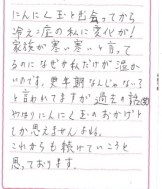 にんにく玉と出会ってから
冷え症の私に変化が!
家族が寒い寒いと言って
るのになぜか私だけが温か
いのです。更年期なんじゃない?
と言われてますが過去の話
やはりにんにく玉のおかげとし
か思えませんよね。
これからも続けていこうと
思っております。